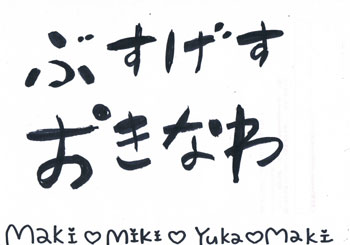 ぶすげす
おきなわ
Maki♡Miki♡Yuka♡Maki